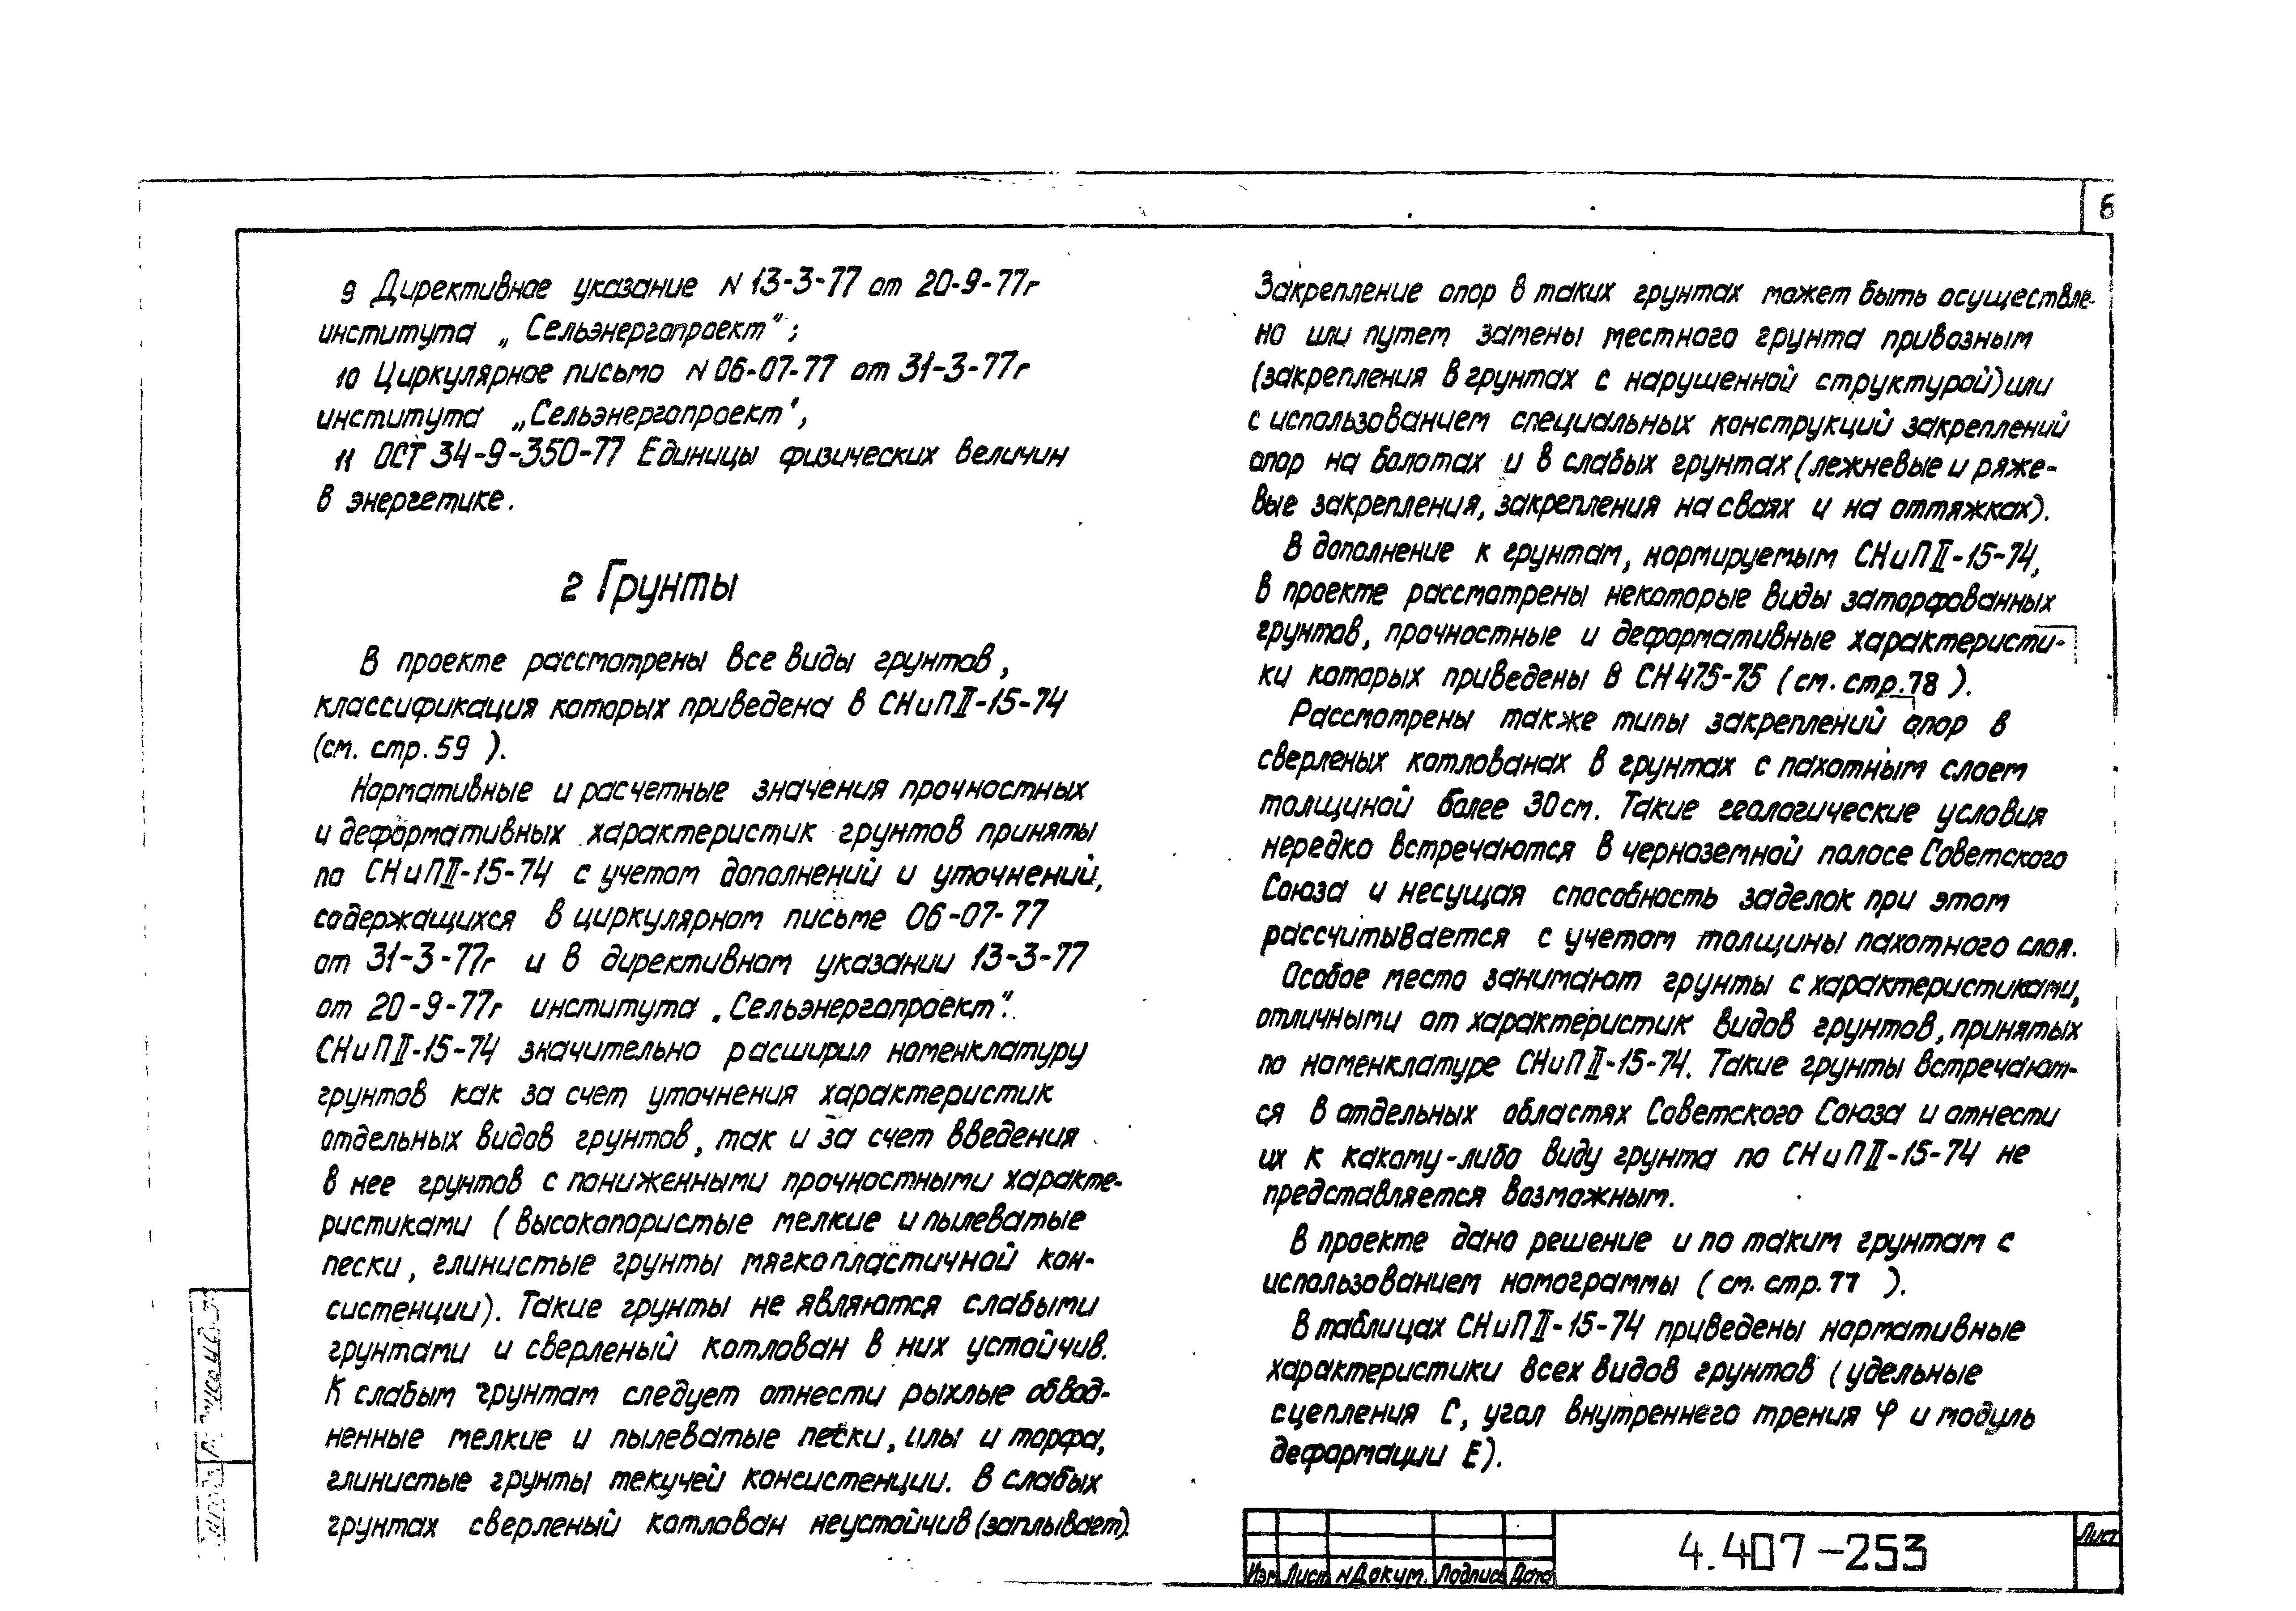 6
9 Директивное указание N 13-3-77 от 20-9-77г
института „Сельэнергопроект";
10 Циркулярное письмо N 06-07-77 от 31-3-77г
института „Сельэнергопроект",
11 ОСТ 34-9-350-77 Единицы физических величин
в энергетике.
г Грунты
В проекте рассмотрены все виды грунтов,
классификация которых приведена в СНиП II-15-74
(см. стр. 59 ).
Нормативные и расчетные значения прочностных
и деформативных характеристик грунтов приняты
по СНиП II-15-74 с учетом дополнений и уточнений,
содержащихся в циркулярном письме 06-07-77
от 31-3-77г и в директивном указании 13-3-77
от 20-9-77г института „Сельэнергопроект".
СНиП II-15-74 значительно расширил номенклатуру
грунтов как за счет уточнения характеристик
отдельных видов грунтов, так и за счет введения
в нее грунтов с пониженными прочностными характе-
ристиками (высокопористые мелкие и пылеватые
пески, глинистые грунты мягкопластичной кон-
систенции). Такие грунты не являются слабыми
грунтами и сверленый котлован в них устойчив.
К слабым грунтам следует отнести рыхлые обвод-
ненные мелкие и пылеватые пески, илы и торфа,
глинистые грунты текучей консистенции. В слабых
грунтах сверленый котлован неустойчив (заплывает).
Закрепление опор в таких грунтах может быть осуществле-
но или путем замены местного грунта привозным
(закрепления в грунтах с нарушенной структурой) или
с использованием специальных конструкций закреплений
опор на болотах и в слабых грунтах (лежневые и ряже-
вые закрепления, закрепления на сваях и на оттяжках).
В дополнение к грунтам, нормируемым СНиП II-15-74,
в проекте рассмотрены некоторые виды заторфованных
грунтов, прочностные и деформативные характеристи-
ки которых приведены в СН 475-75 (см. стр. 78 ).
Рассмотрены также типы закреплений опор в
сверленых котлованах в грунтах с пахотным слоем
толщиной более 30 см. Такие геологические условия
нередко встречаются в черноземной полосе Советского
Союза и несущая способность заделок при этом
рассчитывается с учетом толщины пахотного слоя.
Особое место занимают грунты с характеристиками,
отличными от характеристик видов грунтов, принятых
по номенклатуре СНиП II-15-74. Такие грунты встречают-
ся в отдельных областях Советского Союза и отнести
их к какому-либо виду грунта по СНиП II-15-74 не
представляется возможным.
В проекте дано решение и по таким грунтам с
использованием номограммы (см. стр. 77 ).
В таблицах СНиП II-15-74 приведены нормативные
характеристики всех видов грунтов (удельные
сцепления С, угол внутреннего трения φ и модуль
деформации Е).
Изм Лист N Докум. Подпись Дата
4.407-253
Лист